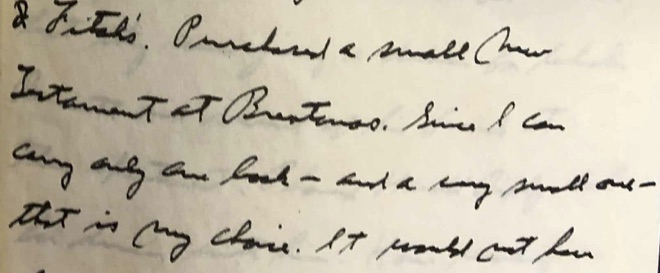 & Fitch's. Purchased a small New
Testament at Brentanos. Since I can
carry only one book – and a very small one –
that is my choice. It would not have